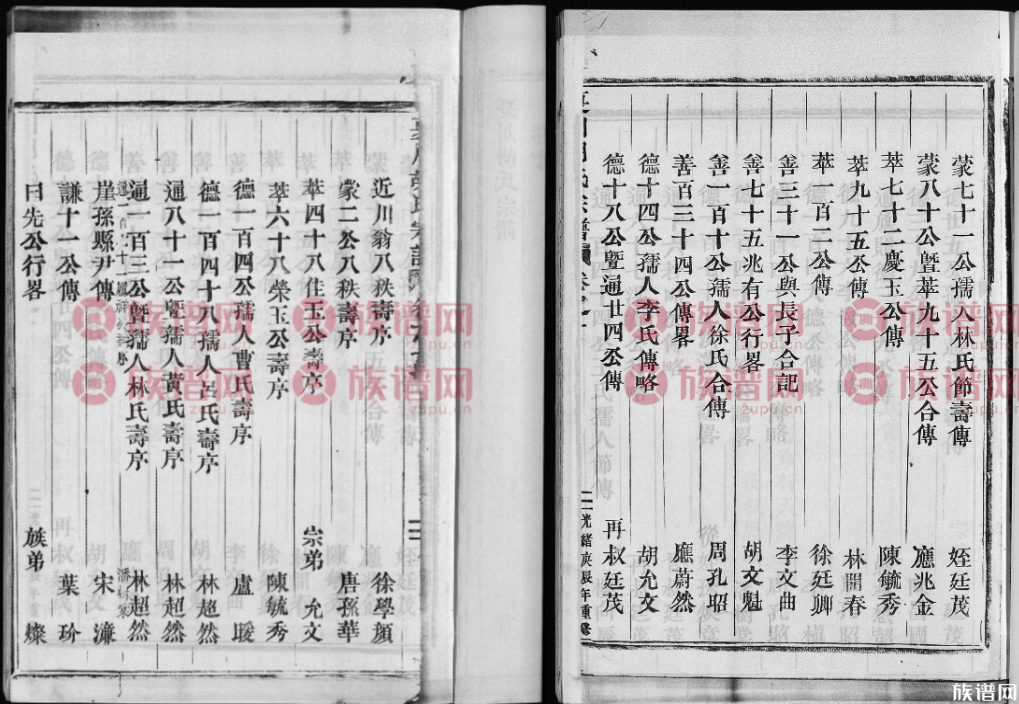 蒙七十一公孺人林氏節壽傳 姪廷茂
蒙八十公暨萃九十五公合傳 應兆金
萃七十二慶玉公傳 陳毓秀
萃九十五公傳 林開春
萃一百二公傳 徐廷卿
善三十一公與長子合記 李文曲
善七十五兆有公行畧 胡文魁
善一百十公孺人徐氏合傳 周孔昭
善百三十四公傳畧 應蔚然
德十四公孺人李氏傳略 胡允文
德十八公暨通廿四公傳 再叔廷茂
二 光緒庚辰年重修
近川翁八秩壽序 徐學顏
蒙二公八秩壽序 唐孫華
萃四十八佳玉公壽序 宗弟 允文
萃六十八榮玉公壽序 陳毓秀
德一百四公孺人曹氏壽序 盧暖
德一百四十八孺人呂氏壽序 林超然
通八十一公暨孺人黃氏壽序 林超然
通一百三公暨孺人林氏壽序 林超然
崖孫縣尹傳 宋濂
謙十一公傳 葉玠
曰先公行畧 族弟 燦
族谱网
zupu.cn
族谱网
zupu.cn
族谱网
zupu.cn
族谱网